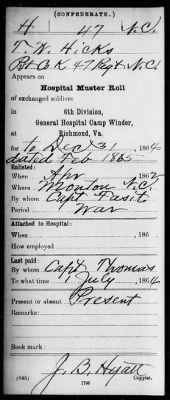 (CONFEDERATE.)
H 47 N.C.
T. W. Hicks
Pvt Co K 47 Regt N.C.
Appears on
Hospital Muster Roll
of exchanged soldiers
in
6th Division,
General Hospital Camp Winder,
Richmond, Va.
for to Dec 31, 1864.
dated Feb 1865
Enlisted:
When Apr, 1862
Where N.C.
By whom Capt
Period War
Attached to Hospital:
When , 186 .
How employed
Last paid:
By whom Capt. Thomas
To what time July, 1864.
Present or absent Present
Remarks:
Book mark:
J. B. Hyatt
(645) Copyist.